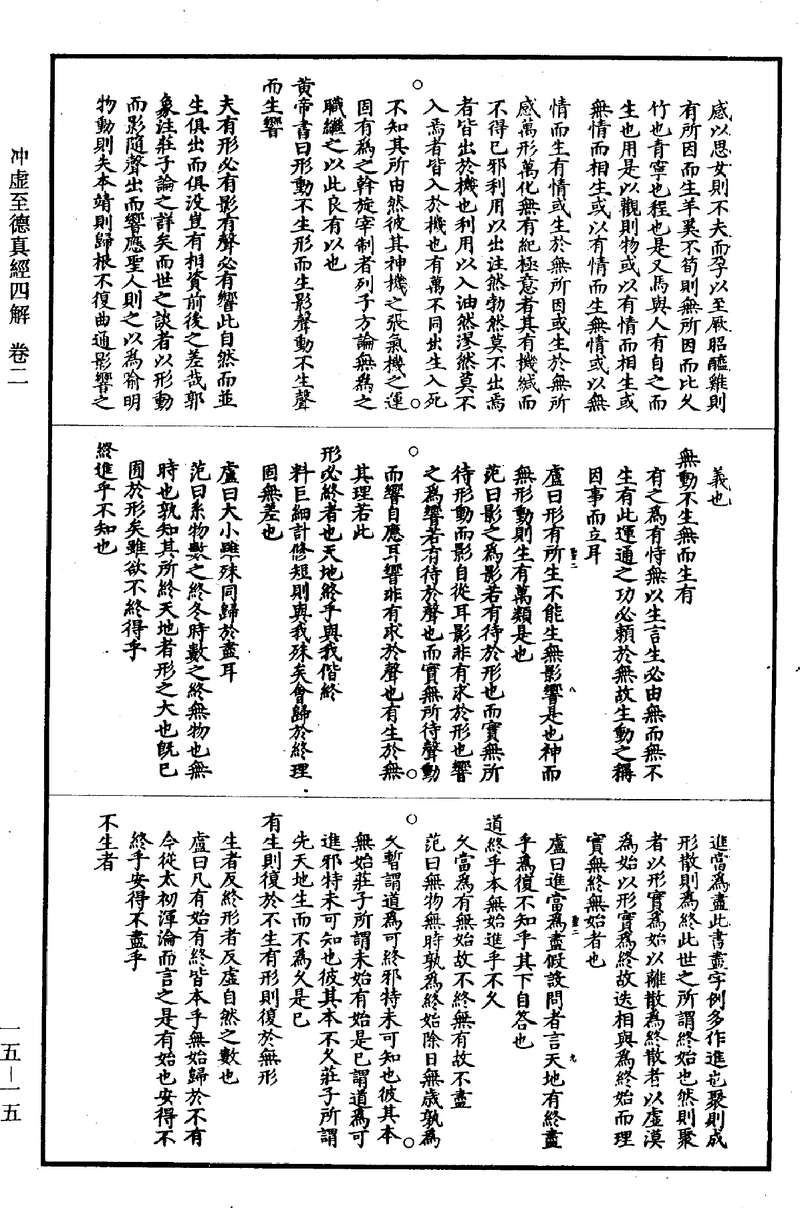 感以思女則不夫而孕以至厥昭醯雞則
有所因而生羊奚不筍則無所因而比久
竹也青寧也程也是又馬與人有自之而
生也用是以觀則物或以有情而相生或
無情而相生或以有情而生無情或以無
情而生有情或生於無所因或生於無所
感萬形萬化無有紀極意者其有機緘而
不得已邪利用以出注然勃然莫不出焉
者皆出於機也利用以入油然漻然莫不
入焉者皆入於機也有萬不同出生入死
不知其所由然彼其神機之張氣機之運
固有為之幹旋宰制者列子方論無為之
職繼之以此良有以也
黃帝書曰形動不生形而生影聲動不生聲
而生響
夫有形必有影有聲必有響此自然而並
生俱出而俱沒豈有相資前後之差哉郭
象注莊子論之詳矣而世之談者以形動
而影隨聲出而響應聖人則之以為喻明
物動則失本靖則歸根不復曲通影響之
義也
無動不生無而生有
有之為有恃無以生言生必由無而無不
生有此運通之功必賴於無故生動之稱
因事而立耳
盧曰形有所生不能生無影響是也神而
無形動則生有萬類是也
范曰影之為影若有待於形也而實無所
待形動而影自從耳影非有求於形也響
之為響若有待於聲也而實無所待聲動
而響自應耳響非有求於聲也有生於無
其理若此
形必終者也天地終乎與我偕終
料巨細計修短則與我殊矣會歸於終理
固無差也
盧曰大小雖殊同歸於盡耳
范曰系物數之終冬時數之終無物也無
時也孰知其所終天地者形之大也既已
囿於形矣雖欲不終得乎
終進乎不知也
進當為盡此書盡字例多作進也聚則成
形散則為終此世之所謂終始也然則聚
者以形實為始以離散為終散者以虛漠
為始以形實為終故迭相與為終始而理
實無終無始者也
盧曰進當為盡假設問者言天地有終盡
乎為復不知乎其下自答也
道終乎本無始進乎不久
久當為有無始故不終無有故不盡
范曰無物無時孰為終始除日無歲孰為
久暫謂道為可終邪特未可知也彼其本
無始莊子所謂未始有始是已謂道為可
進邪特未可知也彼其本不久莊子所謂
先天地生而不為久是已
有生則復於不生有形則復於無形
生者反終形者反虛自然之數也
盧曰凡有始有終皆本乎無始歸於不有
今從太初渾淪而言之是有始也安得不
終乎安得不盡乎
不生者
冲虛至德真經四解 卷二
一五—一五